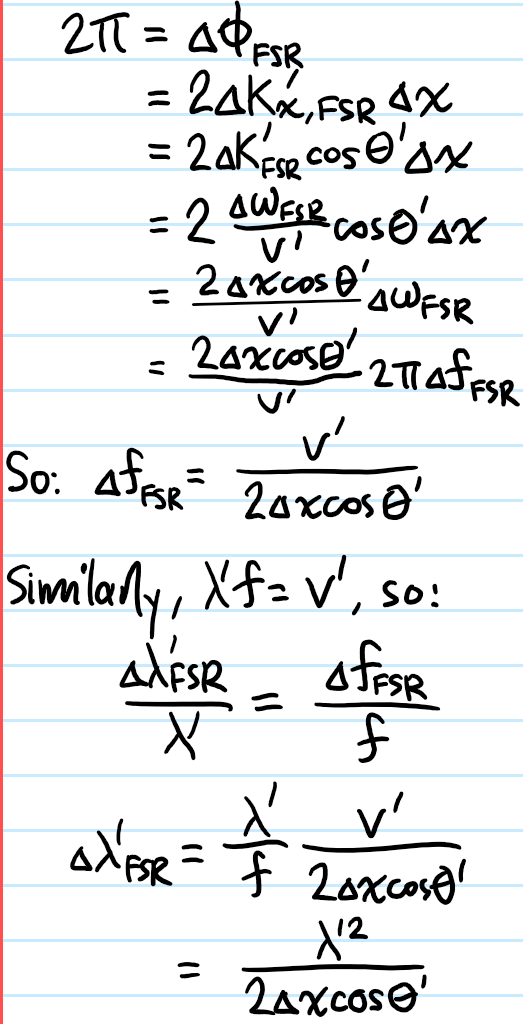 2π = Δϕ_FSR
= 2ΔK'_x,FSR Δx
= 2ΔK'_FSR cosθ'Δx
= 2 Δω_FSR/v' cosθ'Δx
= 2Δxcosθ'/v' Δω_FSR
= 2Δxcosθ'/v' 2πΔf_FSR
So: Δf_FSR = v'/2Δxcosθ'
Similarly, λ'f = v', so:
Δλ'_FSR/λ' = Δf_FSR/f
Δλ'_FSR = λ'/f v'/2Δxcosθ'
= λ'²/2Δxcosθ'